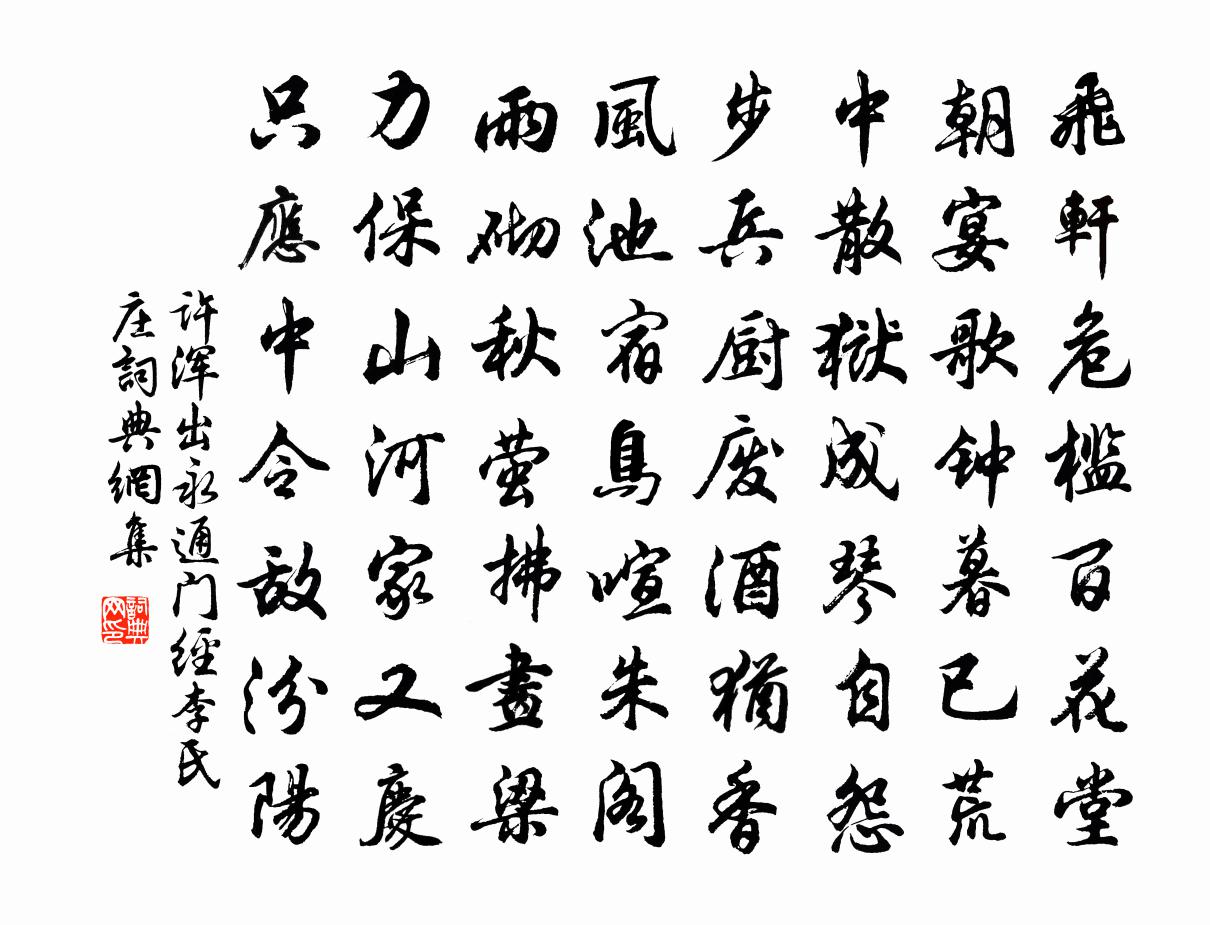 飛軒危檻百花堂
朝宴歌钟暮已荒
中散獄成琴自怨
步兵厨废酒猶香
風池宿鳥喧朱阁
雨砌秋萤拂畫梁
力保山河家又慶
只應中令敌汾陽
许浑出永通门經李氏
庄詞典網集
詞典网印